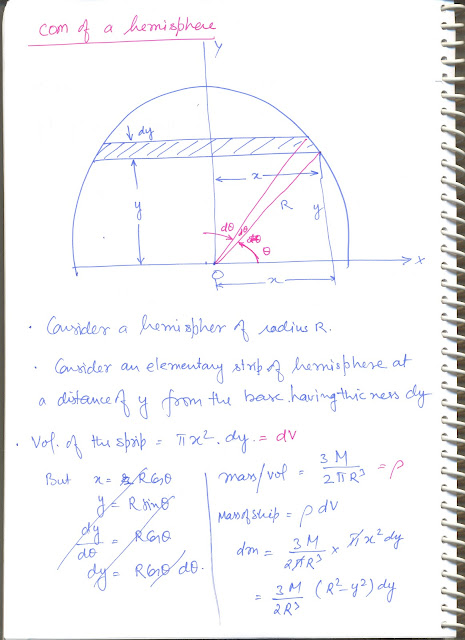 com of a hemisphere
Y
dy
x
y
R
y
dθ
dθ
θ
O
X
x
· Consider a hemispher of radius R.
· Consider an elementary strip of hemisphere at
a distance of y from the base. having thicness dy
· Vol. of the strip = πx². dy. = dV
But x = R cosθ
y = R sinθ
dy/dθ = R cosθ
dy = R cosθ dθ.
mass/vol = 3M/2πR³ = ρ
Mass of strip = ρ dV
dm = 3M/2πR³ × πx² dy
= 3M/2R³ (R²-y²) dy